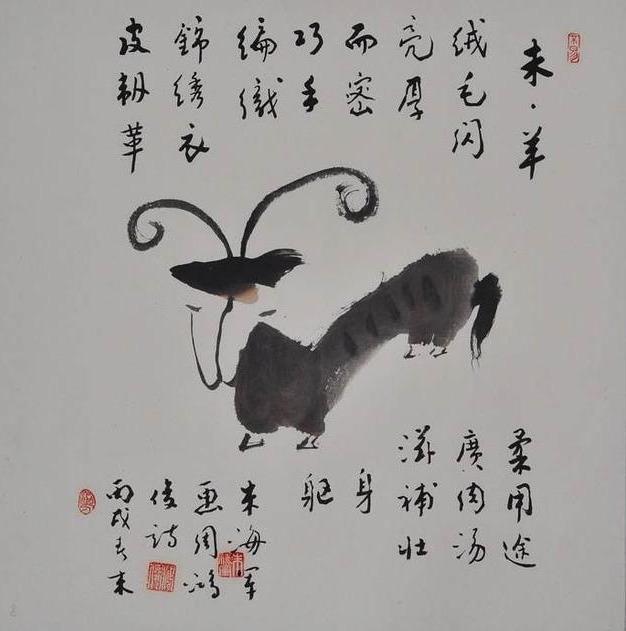 未·羊
绒毛闪
亮厚
而密
巧手
编織
錦绣衣
皮韧革
柔用途
廣肉汤
滋補壮
身
躯
朱海军
画周鸿
俊诗
丙戌春末